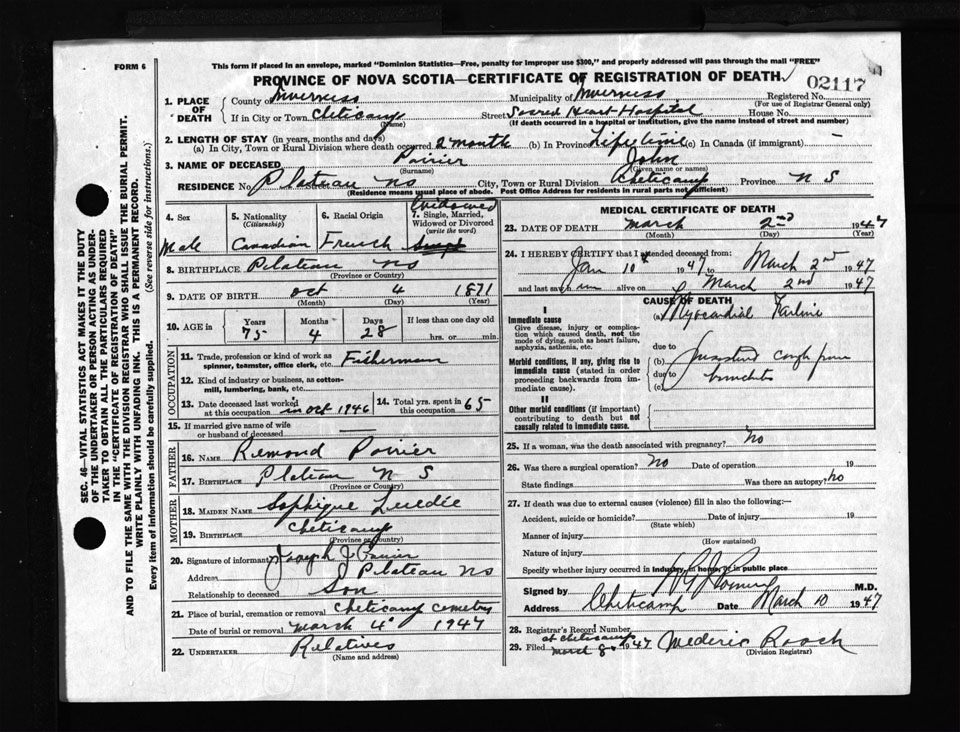 FORM 6
This form if placed in an envelope, marked "Dominion Statistics—Free, penalty for improper use $300," and properly addressed will pass through the mail "FREE"
PROVINCE OF NOVA SCOTIA—CERTIFICATE OF REGISTRATION OF DEATH
02117
1. PLACE OF DEATH County of Inverness Municipality of Inverness Registered No.
(For use of Registrar General only)
If in City or Town Cheticamp (Name) Street Sacred Heart Hospital House No.
(If death occurred in a hospital or institution, give the name instead of street and number)
2. LENGTH OF STAY (in years, months and days)
(a) In City, Town or Rural Division where death occurred 2 month (b) In Province Life time (c) In Canada (if immigrant) —
3. NAME OF DECEASED Poirier (Surname) John (Given name or names)
RESIDENCE No. Plateau NS City, Town or Rural Division Cheticamp Province N S
(Residence means usual place of abode. Post Office Address for residents in rural parts not sufficient)
4. Sex Male
5. Nationality (Citizenship) Canadian
6. Racial Origin French
7. Single, Married, Widowed or Divorced (write the word) Widowed
8. BIRTHPLACE Plateau NS
(Province or Country)
9. DATE OF BIRTH Oct 4 1871
(Month) (Day) (Year)
10. AGE in Years Months Days If less than one day old
75 4 28 hrs. or min.
OCCUPATION
11. Trade, profession or kind of work as spinner, teamster, office clerk, etc. Fisherman
12. Kind of industry or business, as cotton-mill, lumbering, bank, etc.
13. Date deceased last worked at this occupation in Oct 1946
14. Total yrs. spent in this occupation 65
15. If married give name of wife or husband of deceased
FATHER
16. NAME Remond Poirier
17. BIRTHPLACE Plateau N S
(Province or Country)
MOTHER
18. MAIDEN NAME Sophique
19. BIRTHPLACE Cheticamp
(Province or Country)
20. Signature of informant Joseph J Poirier
Address Plateau NS
Relationship to deceased Son
21. Place of burial, cremation or removal Cheticamp Cemetery
Date of burial or removal March 4 1947
22. UNDERTAKER Relatives
(Name and address)
MEDICAL CERTIFICATE OF DEATH
23. DATE OF DEATH March 2nd 1947
(Month) (Day) (Year)
24. I HEREBY CERTIFY that I attended deceased from:
Jan 10th 1947 to March 2nd 1947
and last saw him alive on March 2nd 1947
CAUSE OF DEATH
I
Immediate cause
Give disease, injury or complication which caused death, not the mode of dying, such as heart failure, asphyxia, asthenia, etc.
(a) Myocardial Failure
due to
Morbid conditions, if any, giving rise to immediate cause (stated in order proceeding backwards from immediate cause).
(b) cough from
due to
(c) bronchitis
II
Other morbid conditions (if important) contributing to death but not causally related to immediate cause.
25. If a woman, was the death associated with pregnancy? No
26. Was there a surgical operation? No Date of operation 19
State findings Was there an autopsy? No
27. If death was due to external causes (violence) fill in also the following:—
Accident, suicide or homicide? Date of injury 19
(State which)
Manner of injury
(How sustained)
Nature of injury
Specify whether injury occurred in industry, in home, or in public place
Signed by M.D.
Address Cheticamp Date March 10 1947
28. Registrar's Record Number
29. Filed at Cheticamp March 8 1947 Mederic Roach
(Division Registrar)
SEC. 46—VITAL STATISTICS ACT MAKES IT THE DUTY
OF THE UNDERTAKER OR PERSON ACTING AS UNDER-
TAKER TO OBTAIN ALL THE PARTICULARS REQUIRED
IN THE "CERTIFICATE OF REGISTRATION OF DEATH"
AND TO FILE THE SAME WITH THE DIVISION REGISTRAR WHO SHALL ISSUE THE BURIAL PERMIT.
WRITE PLAINLY WITH UNFADING INK. THIS IS A PERMANENT RECORD.
Every item of information should be carefully supplied. (See reverse side for instructions.)